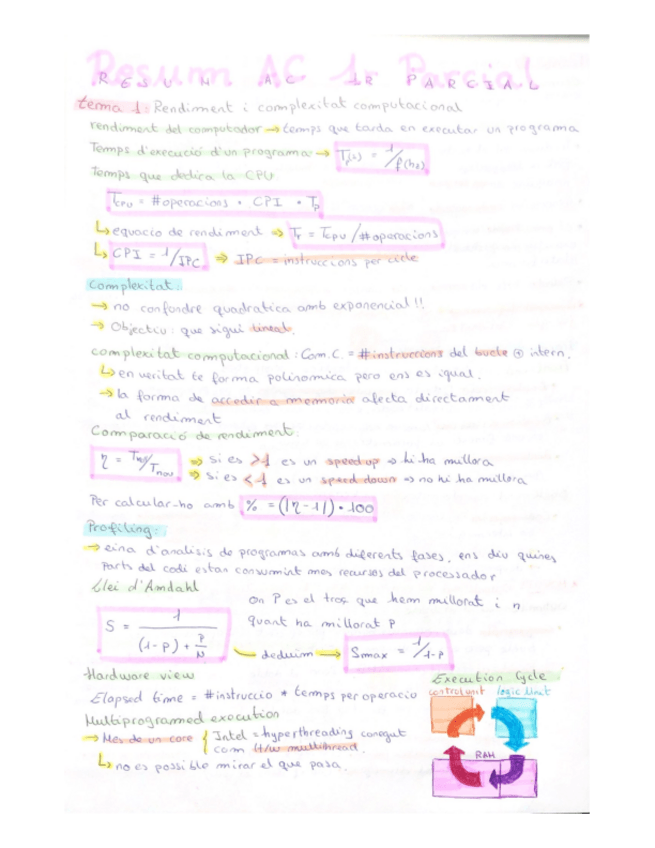 Resum AC 1r Parcial
RESUM AC 1R PARCIAL
tema 1: Rendiment i complexitat computacional
rendiment del computador → temps que tarda en executar un programa
Temps d'execució d'un programa → Tp(s) = 1/f(hz)
Temps que dedica la CPU
Tcpu = #operacions · CPI · Tp
↳ equacio de rendiment ⇒ Tr = Tcpu / #operacions
↳ CPI = 1/IPC ⇒ IPC = instruccions per cicle
Complexitat:
→ no confondre quadratica amb exponencial!!
→ Objectiu: que sigui lineal.
complexitat computacional: Com. C. = #instruccions del bucle + intern.
↳ en veritat te forma polinomica pero ens es igual.
→ la forma de accedir a memoria afecta directament
al rendiment
Comparació de rendiment:
η = /Tnou ⇒ si es >1 es un speed up ⇒ hi ha millora
⇒ si es <1 es un speed down ⇒ no hi ha millora
Per calcular-ho amb % = (|η-1|) · 100
Profiling:
→ eina d'analisis de programas amb diferents fases, ens diu quines
parts del codi estan consumint mes recursos del processador
Llei d'Amdahl
on P es el troç que hem millorat i n
quant ha millorat P
S = 1 / ((1-P) + P/N)
deduim → Smax = 1/1-P
Hardware view
Elapsed time = #instruccio * temps per operacio
Multiprogramed execution
→ Mes de un core { Intel = hyperthreading conegut
com H/w multithread.
↳ no es possible mirar el que pasa.
Execution Cycle
control unit logic Unit
RAM